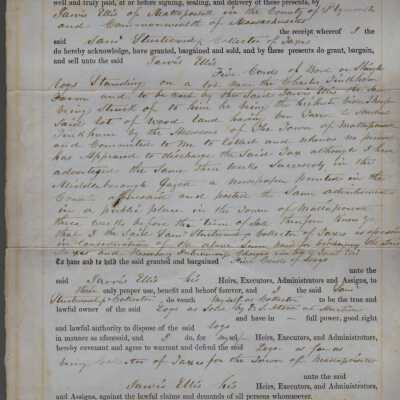 well and truly paid, at or before the sealing, and delivery of these presents, by
Jarvis Ellis of Mattapoisett in the County of Plymouth
and Commonwealth of Massachusetts
the receipt whereof I the
said Saml Sturtevant Collector of Taxes
do hereby acknowledge, have granted, bargained and sold, and by these presents do grant, bargain,
and sell unto the said Jarvis Ellis
Five Cords of Wood or
Logs Standing on a lot near the Charles
Farm and to be cut by the said Jarvis Ellis the same
being struck of to him he being the highest bidder
Said lot of wood land having been Taxed to
by the Assessors of The Town of Mattapoisett
and Committed to me to Collect and whereas no person
has Appeared to discharge the Said Tax although I have
advertised the Same three weeks Successively in the
Middleborough Gazett a newspaper printed in the
County aforesaid and posted the Same advertisement
in a public place in the Town of Mattapoisett
three weeks before the time of Sale Therefore Know ye
that I the Said Saml Sturtevant Collector of Taxes as aforesaid
in consideration of the above Sum paid for
Taxes and
To have and to hold the said granted and bargained Five Cords of Logs
unto the
said Jarvis Ellis his Heirs, Executors, Administrators and Assigns, to
their only proper use, benefit and behoof forever, and I the said Saml
Sturtevant Collector do vouch myself as Collector to be the true and
lawful owner of the said Logs as Sold by
and have in full power, good right
and lawful authority to dispose of the said Logs
in manner as aforesaid, and I do, for myself Heirs, Executors, and Administrators,
hereby covenant and agree to warrant and defend the said Logs as far as
being Collector of Taxes for the Town of Mattapoisett
unto the said
Jarvis Ellis his Heirs, Executors, and Administrators
and Assigns, against the lawful claims and demands of all persons whomsoever.